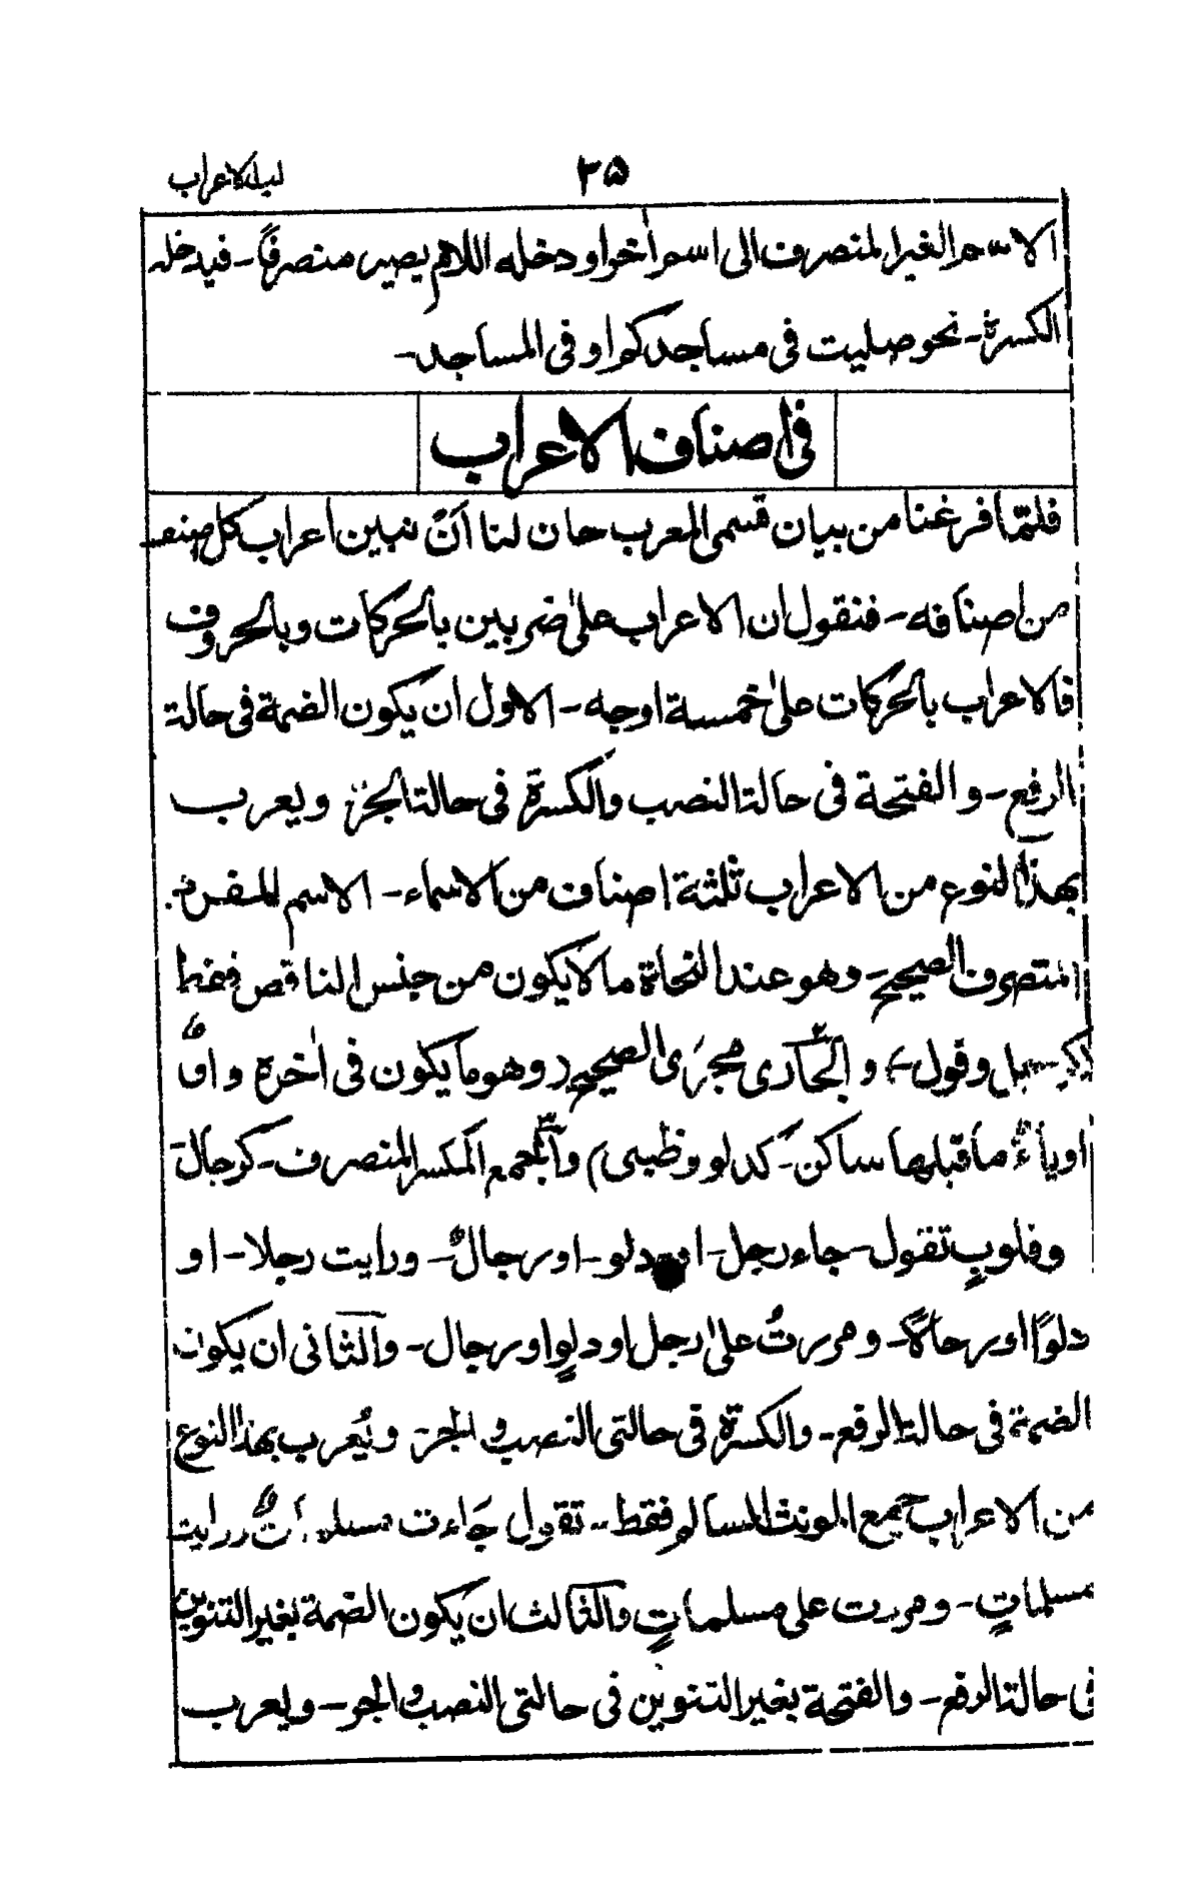 ۳۵
لباب الاعراب
الاسم الغير المنصرف الى اسم اٰخر او دخله اللام يصير منصرفًا - فيدخله
الكسرة - نحو صليت فى مساجدكم او فى المساجد -
فى اصناف الاعراب
فلمّا فرغنا من بيان قسمى المعرب حان لنا أنْ نبين اعراب كل صنف
من اصنافه - فنقول ان الاعراب علىٰ ضربين بالحركات وبالحروف
فالاعراب بالحركات علىٰ خمسة اوجه - الاول ان يكون الضمة فى حالة
الرفع - والفتحة فى حالة النصب والكسرة فى حالة الجر ويعرب
بهذا النوع من الاعراب ثلثة اصناف من الاسماء - الاسم المفرد
المنصرف الصحيح - وهو عند النحاة ما لا يكون من جنس الناقص فقط
وقول) والجّارى مجرَى الصحيح (وهو ما يكون فى اٰخرہ واوٌ
او ياءٌ ما قبلها ساكن - كدلو وظبى) والجمع المكسر المنصرف - كرجال
وقلوبٍ تقول - جاء رجل - او دلو - او رجالٌ - ورايت رجلا - او
دلوًا او رجالًا - ومررتُ علىٰ رجل او دلوٍ او رجال - والثانى ان يكون
الضمة فى حالة الرفع - والكسرة فى حالتى النصب والجر ويُعرب بهذا النوع
من الاعراب جمع المونث السالم فقط - تقول جَاءت مسلماتٌ ورايت
مسلماتٍ - ومررت على مسلماتٍ والثالث ان يكون الضمة بغير التنوين
فى حالة الرفع - والفتحة بغير التنوين فى حالتى النصب والجر - ويعرب